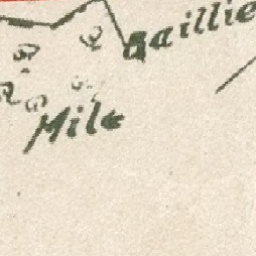 Baillie
Mile